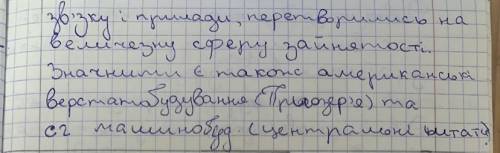 зв'зку і прилади, перетворились на
величезну сферу зайнятості.
Значними є також американські
верстатобудування (Приозер'є) та
сг машинобуд (центральні штати)